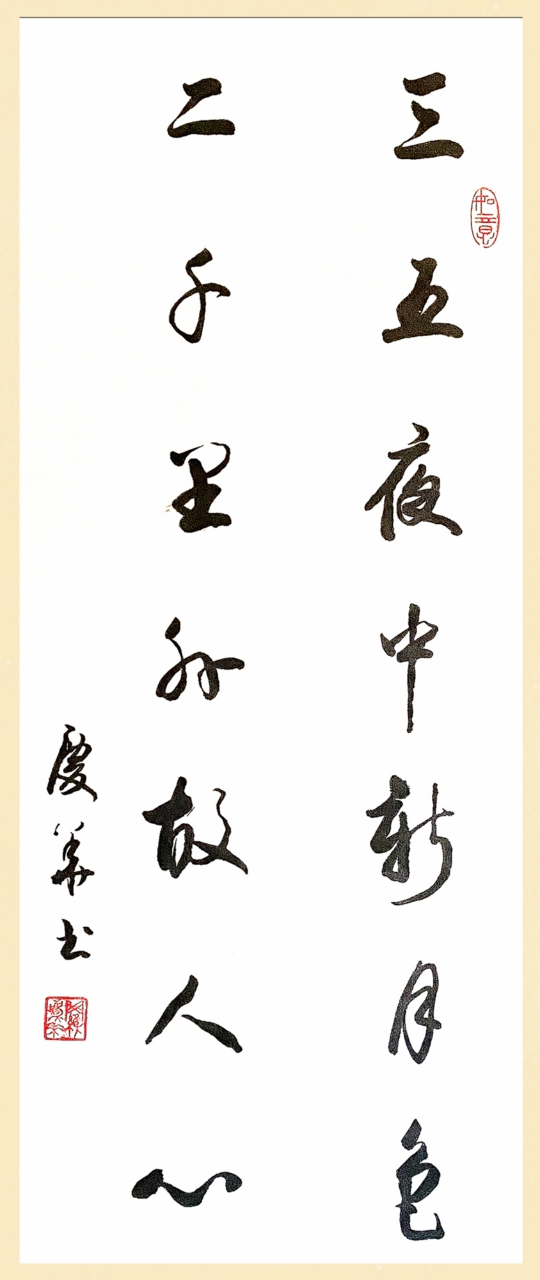 三五夜中新月色
如意
二千里外故人心
慶華书